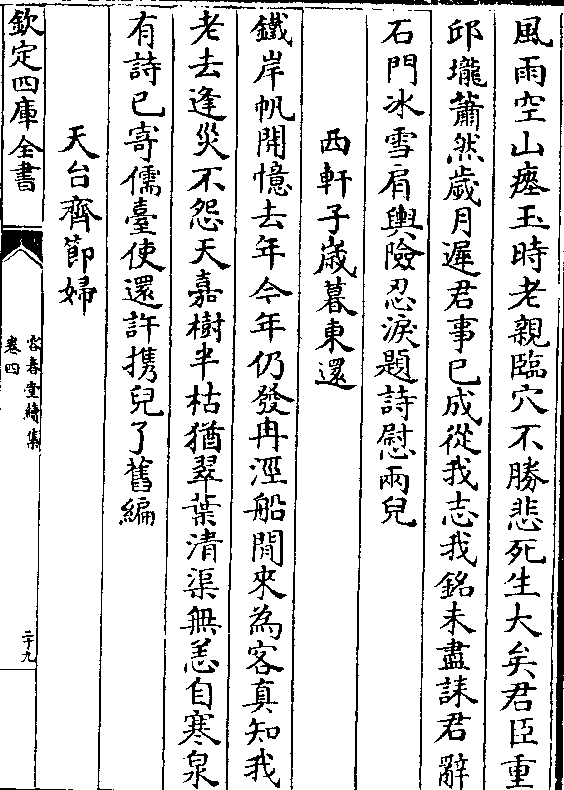 風雨空山瘞玉時老親臨穴不勝悲死生大矣君臣重
邱壠蕭然歲月遲君事已成從我志我銘未盡誄君辭
石門冰雪肩輿險忍淚題詩慰兩兒
西軒子歲暮東還
鐵岸帆開憶去年今年仍發冉涇船閒來為客真知我
老去逢災不怨天嘉樹半枯猶翠葉清渠無恙自寒泉
有詩已寄儒臺使還許携兒了舊編
天台齊節婦
欽定四庫全書
容春堂續集
卷四
二十九